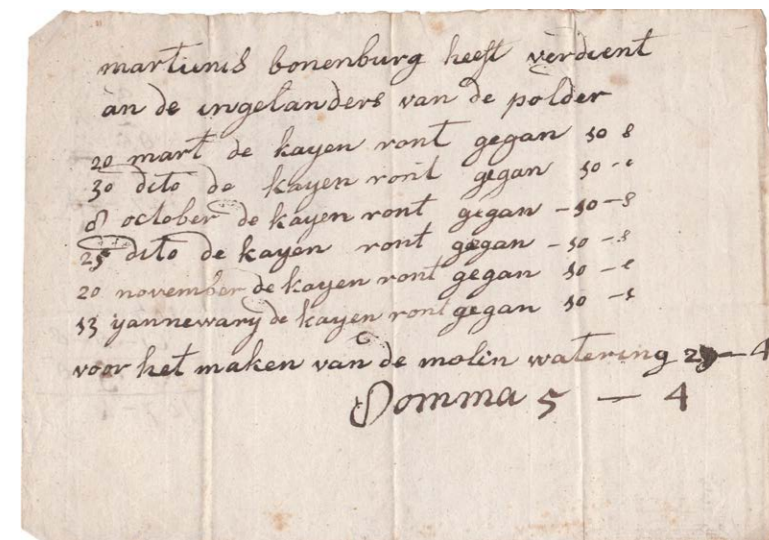 martiunis bonenburg heeft verdient
an de ingelanders van de polder
20 mart de kayen ront gegan 10 8
30 dito de kayen ront gegan 10 -
8 october de kayen ront gegan - 10 - 8
25 dito de kayen ront gegan - 10 - 8
20 november de kayen ront gegan 10 -
13 yannewary de kayen ront gegan 10 -
voor het maken van de molin watering - 4
Somma 5 - 4